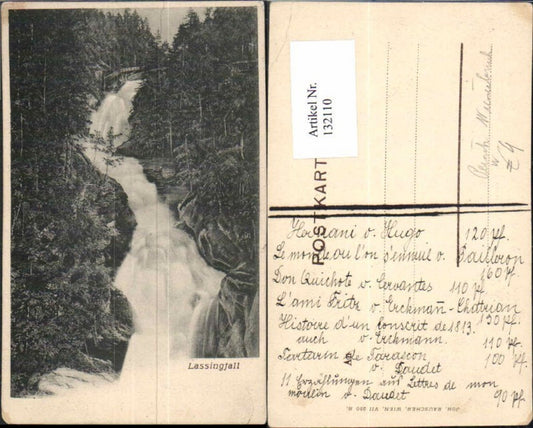 Lassingfall
Artikel Nr.
132110
POSTKARTE
Z 9
Hernani v. Hugo 120 pf.
Le monde où l'on s'ennuie v. Pailleron
160 pf
Don Quichote v. Cervantes 110 pf.
L'ami Fritz v. Erckmann-Chatrian
130 pf.
Histoire d'un conscrit de 1813.
auch v. Erckmann. 110 pf.
Tartarin de Tarascon 100 pf.
v. Daudet
11 Erzählungen aus Lettres de mon
moulin v. Daudet 90 pf.
JOH. RAUSCHER, WIEN, VII 250 B.